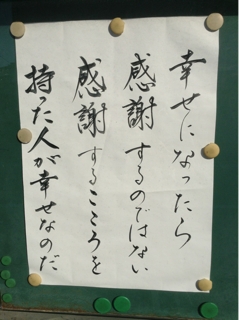 幸せになったら
感謝するのではない
感謝するこころを
持った人が幸せなのだ